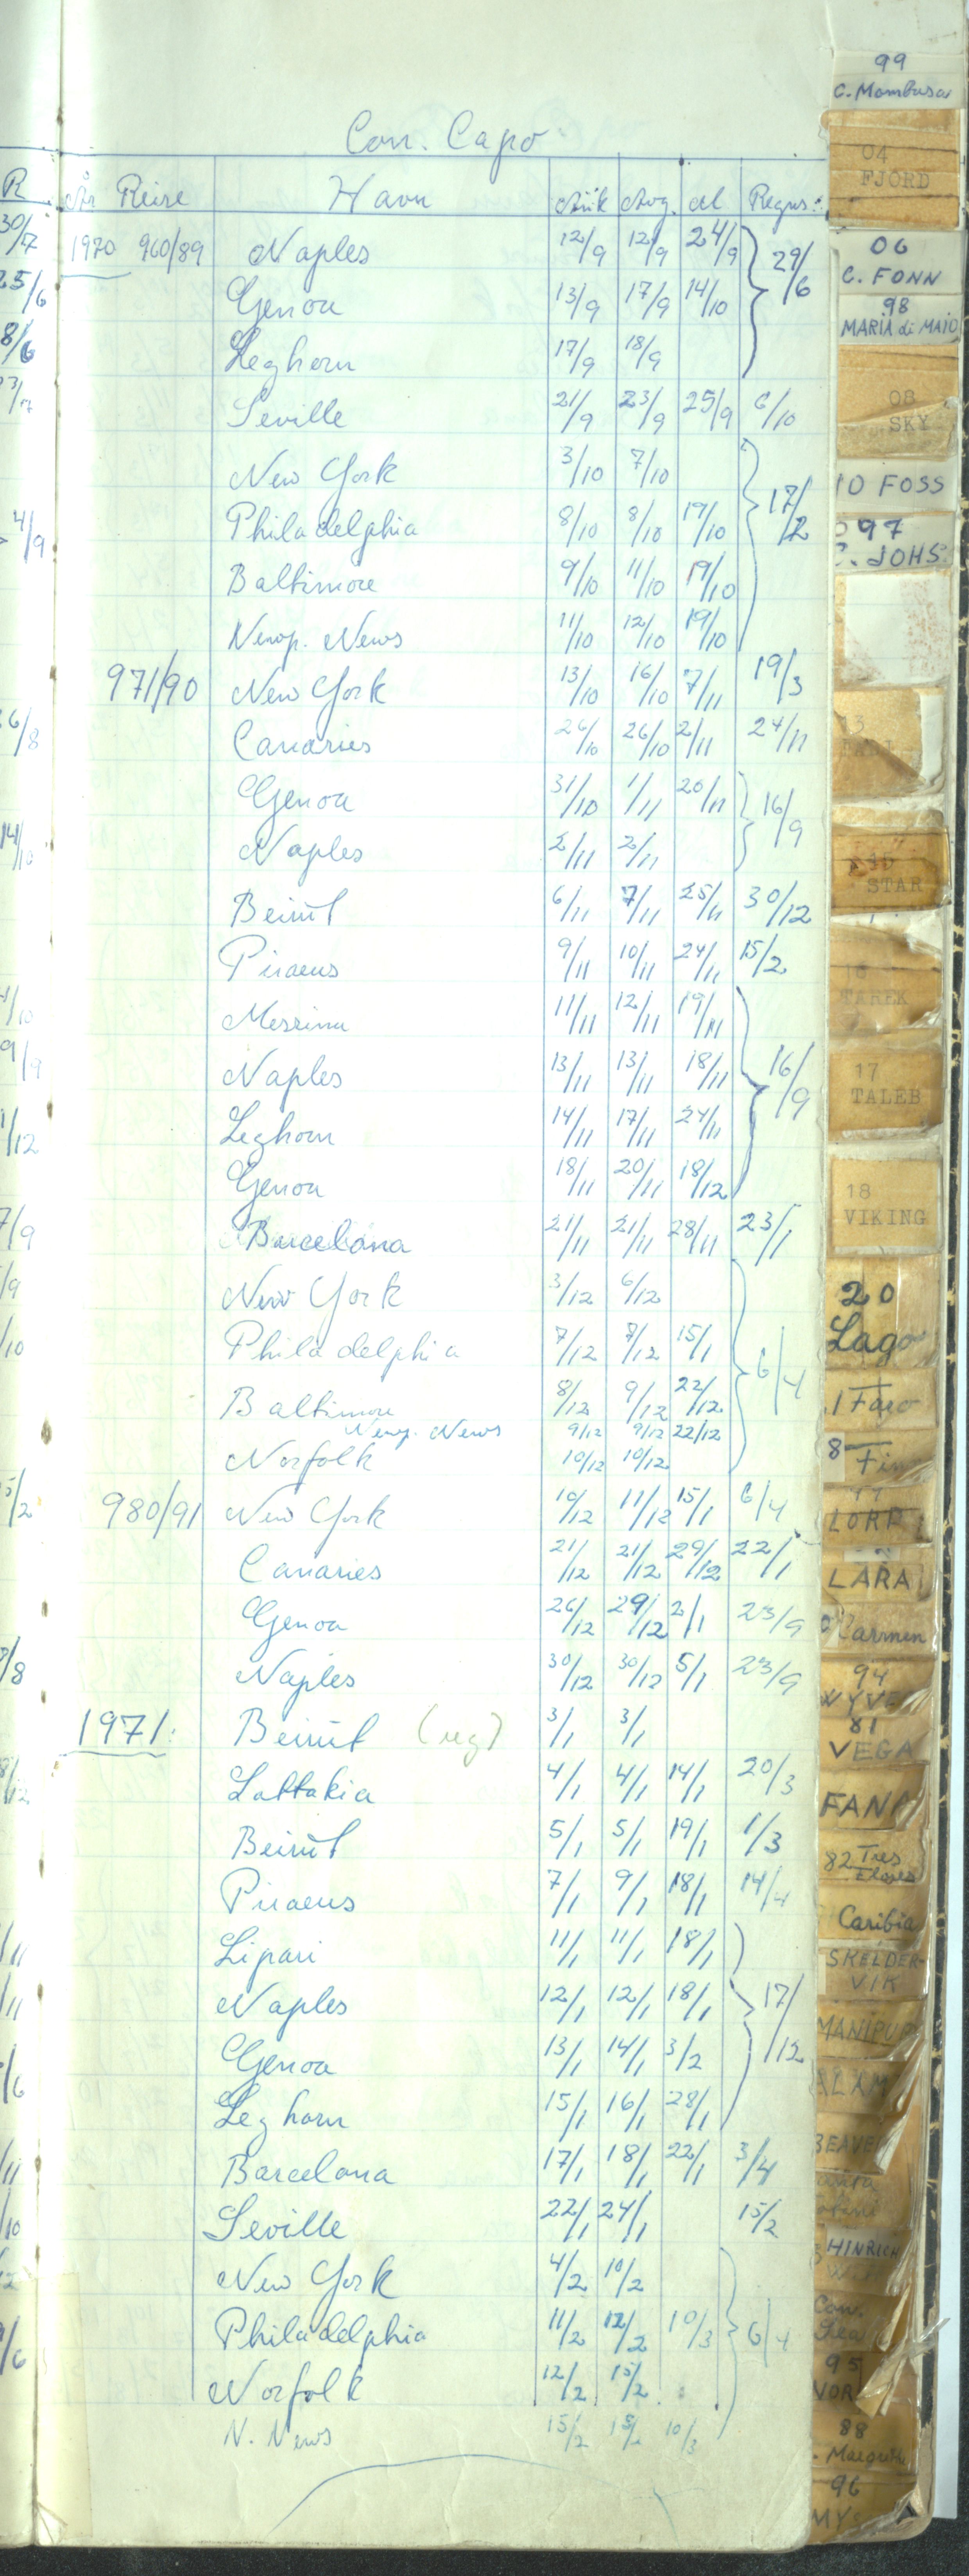 Con. Capo
R
År Reise Havn Ank Avg. al Regns.
1970 960/89 Naples 12/9 12/9 24/9 29/6
Genoa 13/9 17/9 14/10
Leghorn 17/9 18/9
Seville 21/9 23/9 25/9 6/10
New York 3/10 7/10
Philadelphia 8/10 8/10 19/10 17/2
Baltimore 9/10 11/10 19/10
Newp. News 11/10 12/10 19/10
971/90 New York 13/10 16/10 7/11 19/3
Canaries 26/10 26/10 2/11 24/11
Genoa 31/10 1/11 20/11 16/9
Naples 2/11 2/11
Beirut 6/11 7/11 25/11 30/12
Piraeus 9/11 10/11 24/11 15/2
Messina 11/11 12/11 19/11
Naples 13/11 13/11 18/11 16/9
Leghorn 14/11 17/11 24/11
Genoa 18/11 20/11 18/12
Barcelona 21/11 21/11 28/11 23/1
New York 3/12 6/12
Philadelphia 7/12 7/12 15/1 6/4
Baltimore 8/12 9/12 22/12
Newp. News 9/12 9/12 22/12
Norfolk 10/12 10/12
980/91 New York 10/12 11/12 15/1 6/4
Canaries 21/12 21/12 29/12 22/1
Genoa 26/12 29/12 2/1 23/9
Naples 30/12 30/12 5/1 23/9
1971 Beirut (reg) 3/1 3/1
Lattakia 4/1 4/1 14/1 20/3
Beirut 5/1 5/1 19/1 1/3
Piraeus 7/1 9/1 18/1 14/4
Lipari 11/1 11/1 18/1
Naples 12/1 12/1 18/1 17/12
Genoa 13/1 14/1 3/2
Leghorn 15/1 16/1 28/1
Barcelona 17/1 18/1 22/1 3/4
Seville 22/1 24/1 15/2
New York 4/2 10/2
Philadelphia 11/2 12/2 10/3 6/4
Norfolk 12/2 15/2
N. News 15/2 15/2 10/3
99
C. Mombasa
04
FJORD
06
C. FONN
98
MARIA di MAIO
08
SKY
10 FOSS
97
C. JOHS
STAR
16
TAREK
17
TALEB
18
VIKING
20
Lago
Faro
8
LORD
LARA
Carmen
94
81
VEGA
FANA
82 Tres
Caribia
SKELDER-
VIK
MANIPUR
HINRICH
Con.
95
88
96